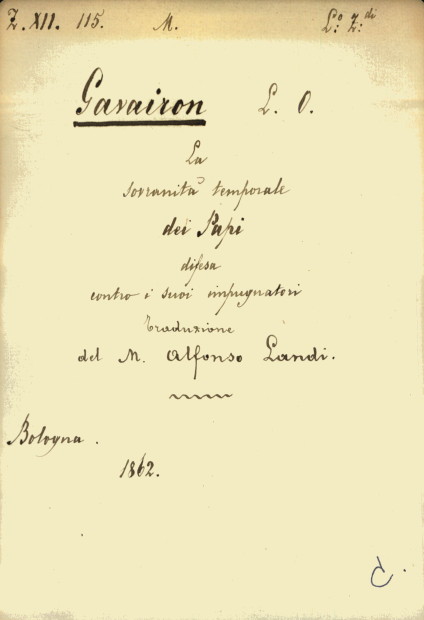 Z. XII. 115. M. L.º Z.di
Gavairon L. O.
La
sovranità temporale
dei Papi
difesa
contro i suoi impugnatori
traduzione
del M. Alfonso Landi.
Bologna.
1862.
C.